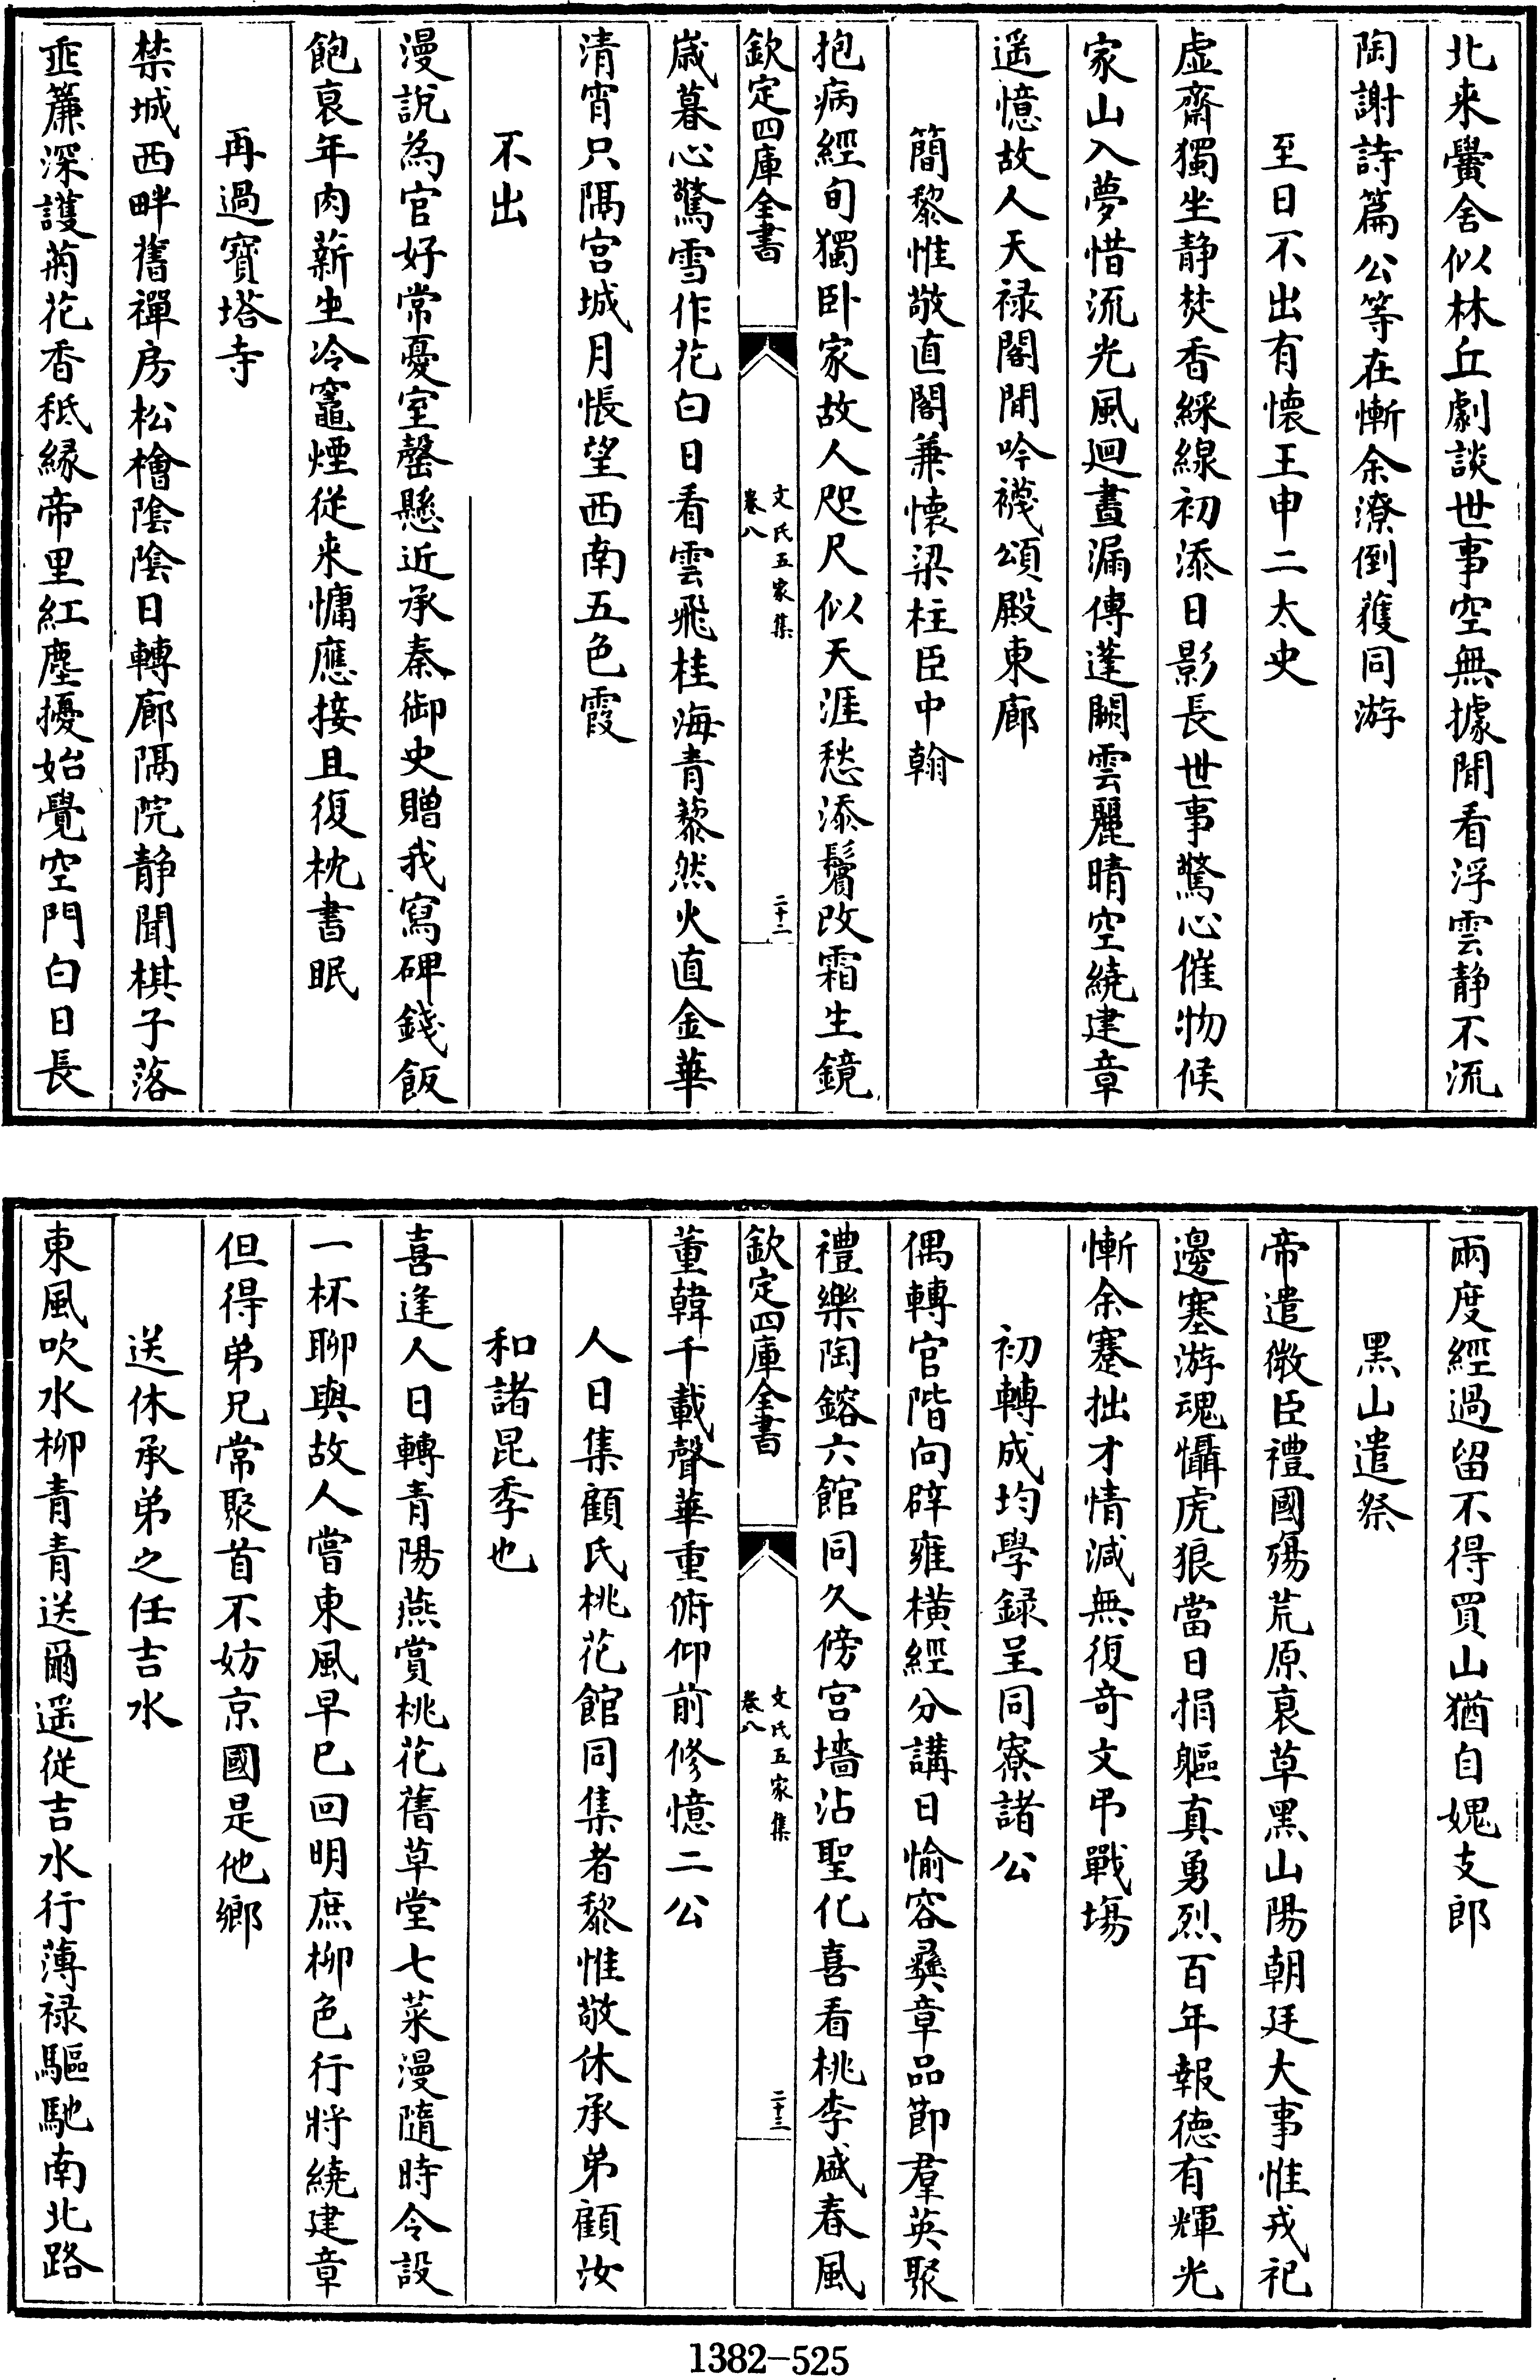 北来黌舍似林丘劇談世事空無據閒看浮雲静不流
陶謝詩篇公等在慚余潦倒獲同游
至日不出有懷王申二太史
虚齋獨坐静焚香綵線初添日影長世事驚心催物候
家山入夢惜流光風迴晝漏傳蓬闕雲麗晴空繞建章
遥憶故人天禄閣閒吟襪頌殿東廊
簡黎惟敬直閣兼懷梁柱臣中翰
抱病經旬獨卧家故人咫尺似天涯愁添鬢改霜生鏡
欽定四庫全書
文氏五家集
卷八
二十二
歲暮心驚雪作花白日看雲飛桂海青藜然火直金華
清宵只隔宫城月悵望西南五色霞
不出
漫說為官好常憂室罄懸近承秦御史贈我寫碑錢飯
飽哀年肉薪生冷竈煙從来慵應接且復枕書眠
再過寳塔寺
禁城西畔舊禪房松檜陰陰日轉廊隔院静聞棋子落
垂簾深護菊花香秪緣帝里紅塵擾始覺空門白日長
兩度經過留不得買山猶自媿支郎
黑山遣祭
帝遣微臣禮國殤荒原衰草黑山陽朝廷大事惟戎祀
邊塞游魂懾虎狼當日捐軀真勇烈百年報德有輝光
慚余蹇拙才情減無復奇文弔戰場
初轉成均學録呈同寮諸公
偶轉官階向辟雍横經分講日愉容彞章品節羣英聚
禮樂陶鎔六館同久傍宫墻沾聖化喜看桃李盛春風
欽定四庫全書
文氏五家集
卷八
二十三
董韓千載聲華重俯仰前修憶二公
人日集顧氏桃花館同集者黎惟敬休承弟顧汝
和諸昆季也
喜逢人日轉青陽燕賞桃花舊草堂七菜漫隨時令設
一杯聊與故人嘗東風早已回明庶柳色行將繞建章
但得弟兄常聚首不妨京國是他鄉
送休承弟之任吉水
東風吹水柳青青送爾遥從吉水行薄禄驅馳南北路
1382-525